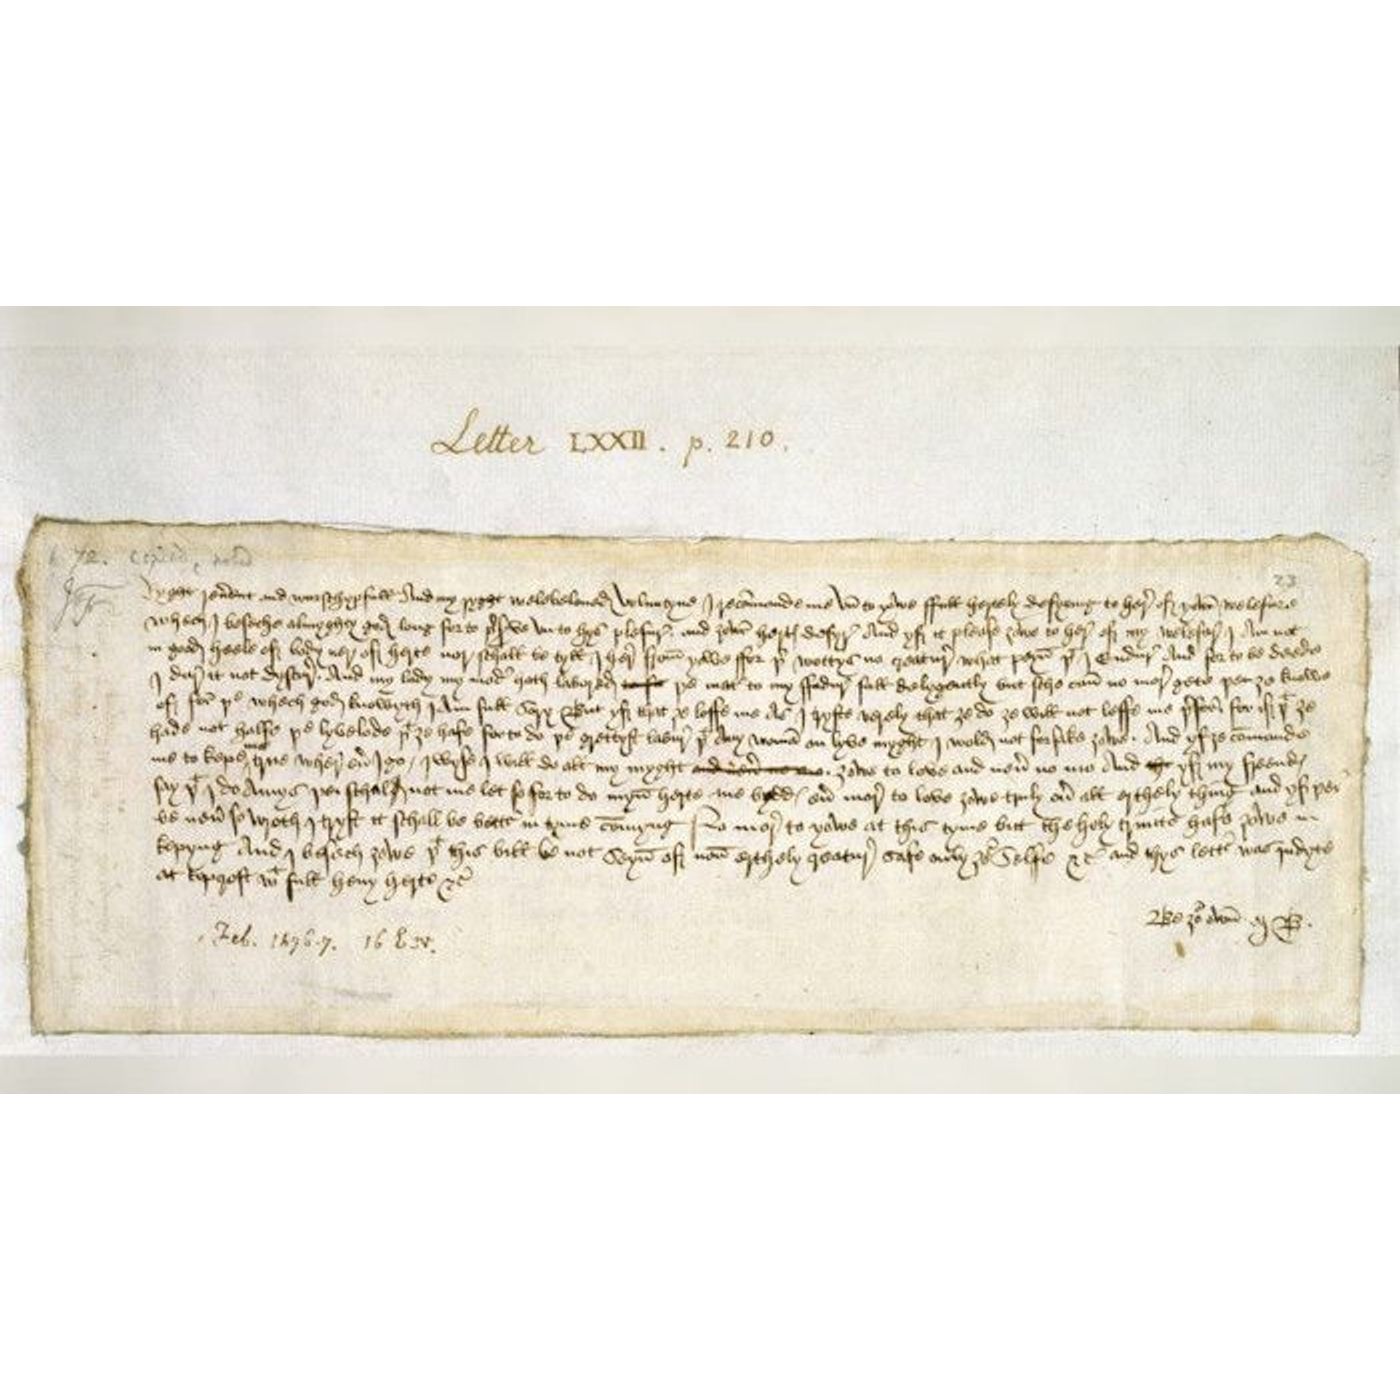 Letter LXXII. p. 210.
72. copied,
23
Ryght reu̅ent and wurschypfull And my ryght welebeloued Voluntyne I reco̅mande me vn to yowe ffull hertely desyring to here of yowr̅ welefare
whech I beseche almyghty god long for to p̅s̅ve vn to hys plesur̅ and ȝowr̅ herts desyr̅ And yf it please ȝowe to her̅ of my welefar̅ I Am not
in good heele of body ner̅ of herte nor̅ schall be tyll I her̅ from̅ yowe ffor þr̅ wottys no creatur̅ what peyn̅ þt I Endur̅ And for to be deede
I dur̅ it not dyscur̅. And my lady my modr̅ hath labored þe mat̅ to my ffadur̅ full delygently but sche can̅ no mor̅ gete þen ȝe knowe
of for̅ þe whech god knowyth I Am full sory But yf that ȝe loffe me As I tryste verely that ȝe do ȝe will not leffe me þr̅for̅ for if þt ȝe
hade not halfe þe lyvelode þt ȝe hafe for to do þe grettyst labur̅ þt Any woman̅ on lyve myght I wold not forsake ȝowe. And yf ȝe co̅mande
me to kepe me true wher̅ eu̅ I go / I wyse I will do all my myght ȝowe to love and neu̅ no mo And yf my freends
say þt I do Amys þei schall not me let so for to do myn̅ herte me bydds eu̅ mor̅ to love ȝowe truly ou̅ all erthely thing and yf þei
be neu̅ so wroth I tryst it schall be bett̅ in tyme co̅myng No mor̅ to yowe at this tyme but the holy trinite hafe ȝowe in
kepyng And I besech ȝowe þt this bill be not seyn̅ of non̅ erthely creatur̅ safe only ȝor̅ Selfe &c̅ and thys lettr̅ was jndyte
at topcroft wt full heuy herte &c̅
Be ȝor̅ own̅ M B.
Feb. 1476-7. 16 E.IV.